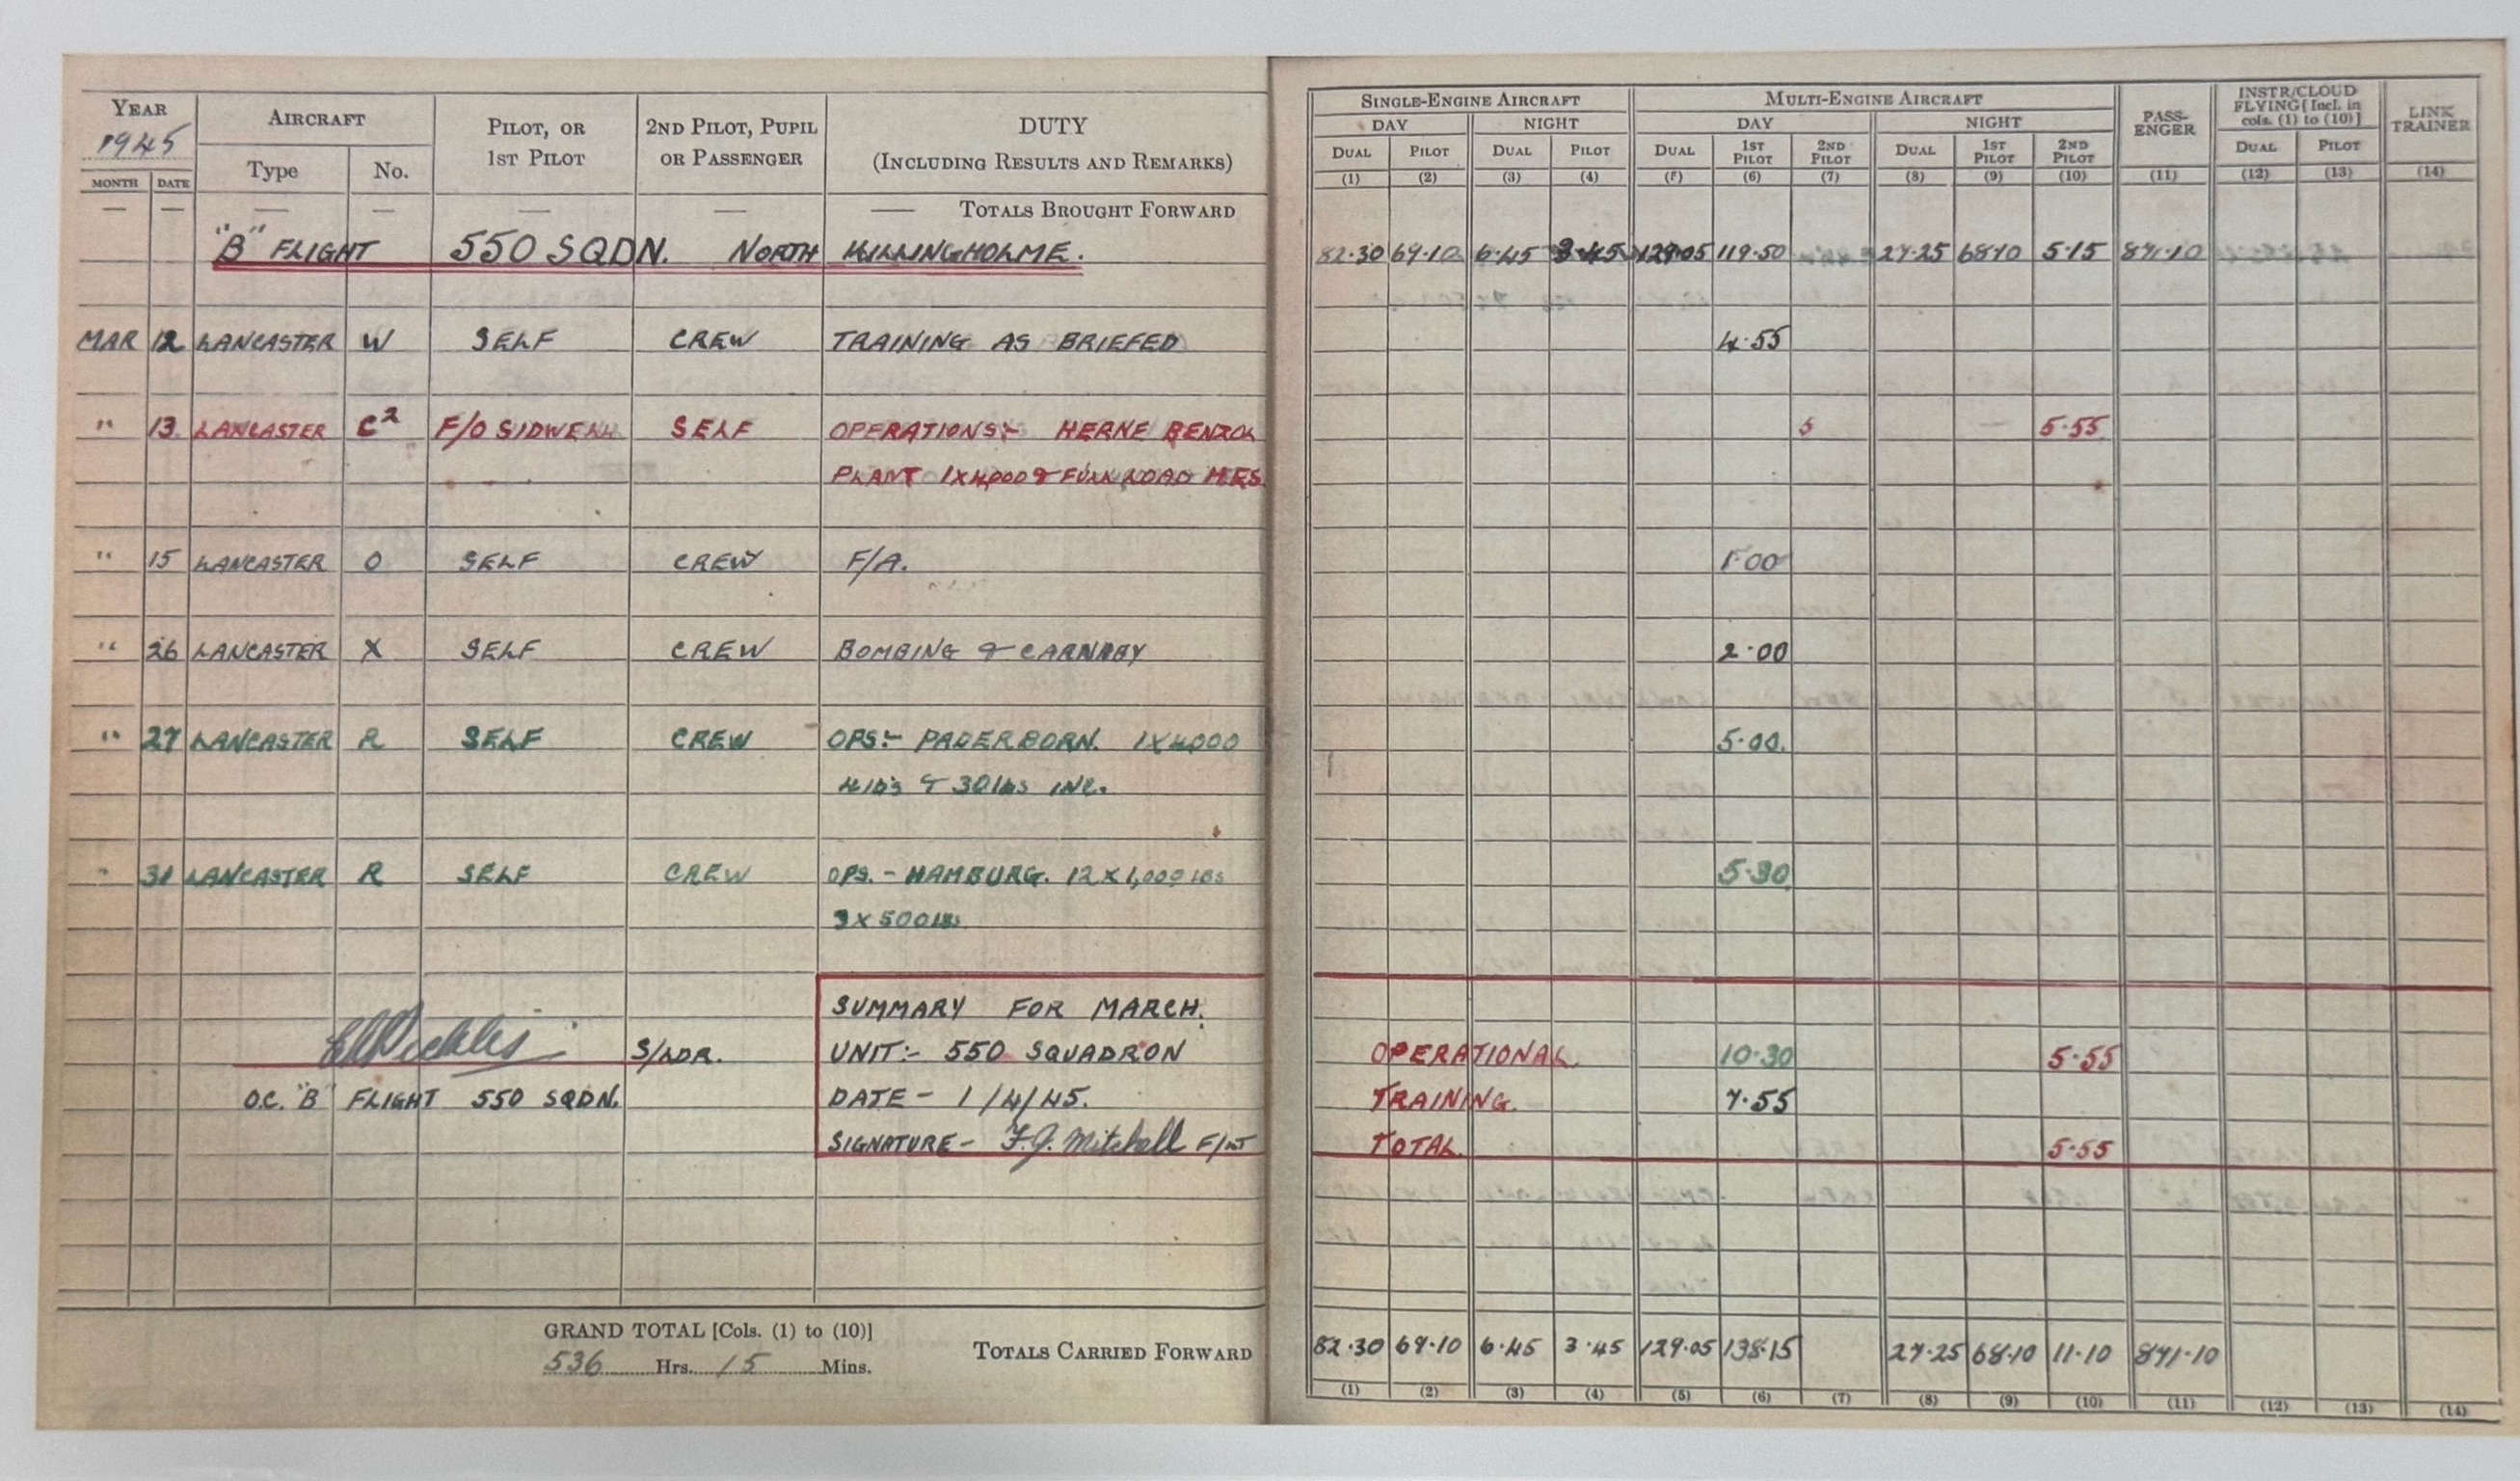 YEAR AIRCRAFT PILOT, OR 1ST PILOT 2ND PILOT, PUPIL OR PASSENGER DUTY (INCLUDING RESULTS AND REMARKS) SINGLE-ENGINE AIRCRAFT MULTI-ENGINE AIRCRAFT PASS-ENGER INSTR/CLOUD FLYING [Incl. in cols. (1) to (10)] LINK TRAINER
1945 DAY NIGHT DAY NIGHT
MONTH DATE Type No. DUAL PILOT DUAL PILOT DUAL 1ST PILOT 2ND PILOT DUAL 1ST PILOT 2ND PILOT DUAL PILOT
(1) (2) (3) (4) (5) (6) (7) (8) (9) (10) (11) (12) (13) (14)
— — — — — — — TOTALS BROUGHT FORWARD
"B" FLIGHT 550 SQDN. NORTH KILLINGHOLME. 82.30 69.10 6.45 3.45 129.05 119.50 27.25 68.10 5.15 871.10
MAR 12 LANCASTER W SELF CREW TRAINING AS BRIEFED 4.55
" 13. LANCASTER C2 F/O SIDWELL SELF OPERATIONS:- HERNE BENZOL 5 5.55
PLANT 1X4,000 & FULL LOAD
" 15 LANCASTER O SELF CREW F/A. 1.00
" 26 LANCASTER X SELF CREW BOMBING & CARNABY 2.00
" 27 LANCASTER R SELF CREW OPS:- PADERBORN. 1X4,000 5.00.
4lbs & 30lbs INC.
" 31 LANCASTER R SELF CREW OPS.- HAMBURG. 12X1,000 lbs 5.30
3X500lbs
SUMMARY FOR MARCH.
S/LDR. UNIT:- 550 SQUADRON OPERATIONAL. 10.30 5.55
O.C. "B" FLIGHT 550 SQDN. DATE- 1/4/45. TRAINING. 7.55
SIGNATURE- F.J. Mitchell F/LT TOTAL. 5.55
GRAND TOTAL [Cols. (1) to (10)]
536 Hrs. 15 Mins. TOTALS CARRIED FORWARD 82.30 69.10 6.45 3.45 129.05 138.15 27.25 68.10 11.10 871.10
(1) (2) (3) (4) (5) (6) (7) (8) (9) (10) (11) (12) (13) (14)